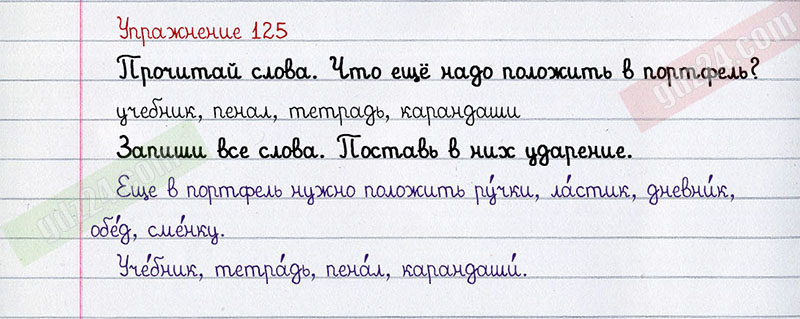 Упражнение 125
Прочитай слова. Что ещё надо положить в портфель?
учебник, пенал, тетрадь, карандаши
Запиши все слова. Поставь в них ударение.
Еще в портфель нужно положить ру́чки, ла́стик, дневни́к,
обе́д, сме́нку.
Уче́бник, тетра́дь, пена́л, карандаши́.
gdz24.com
gdz24.com